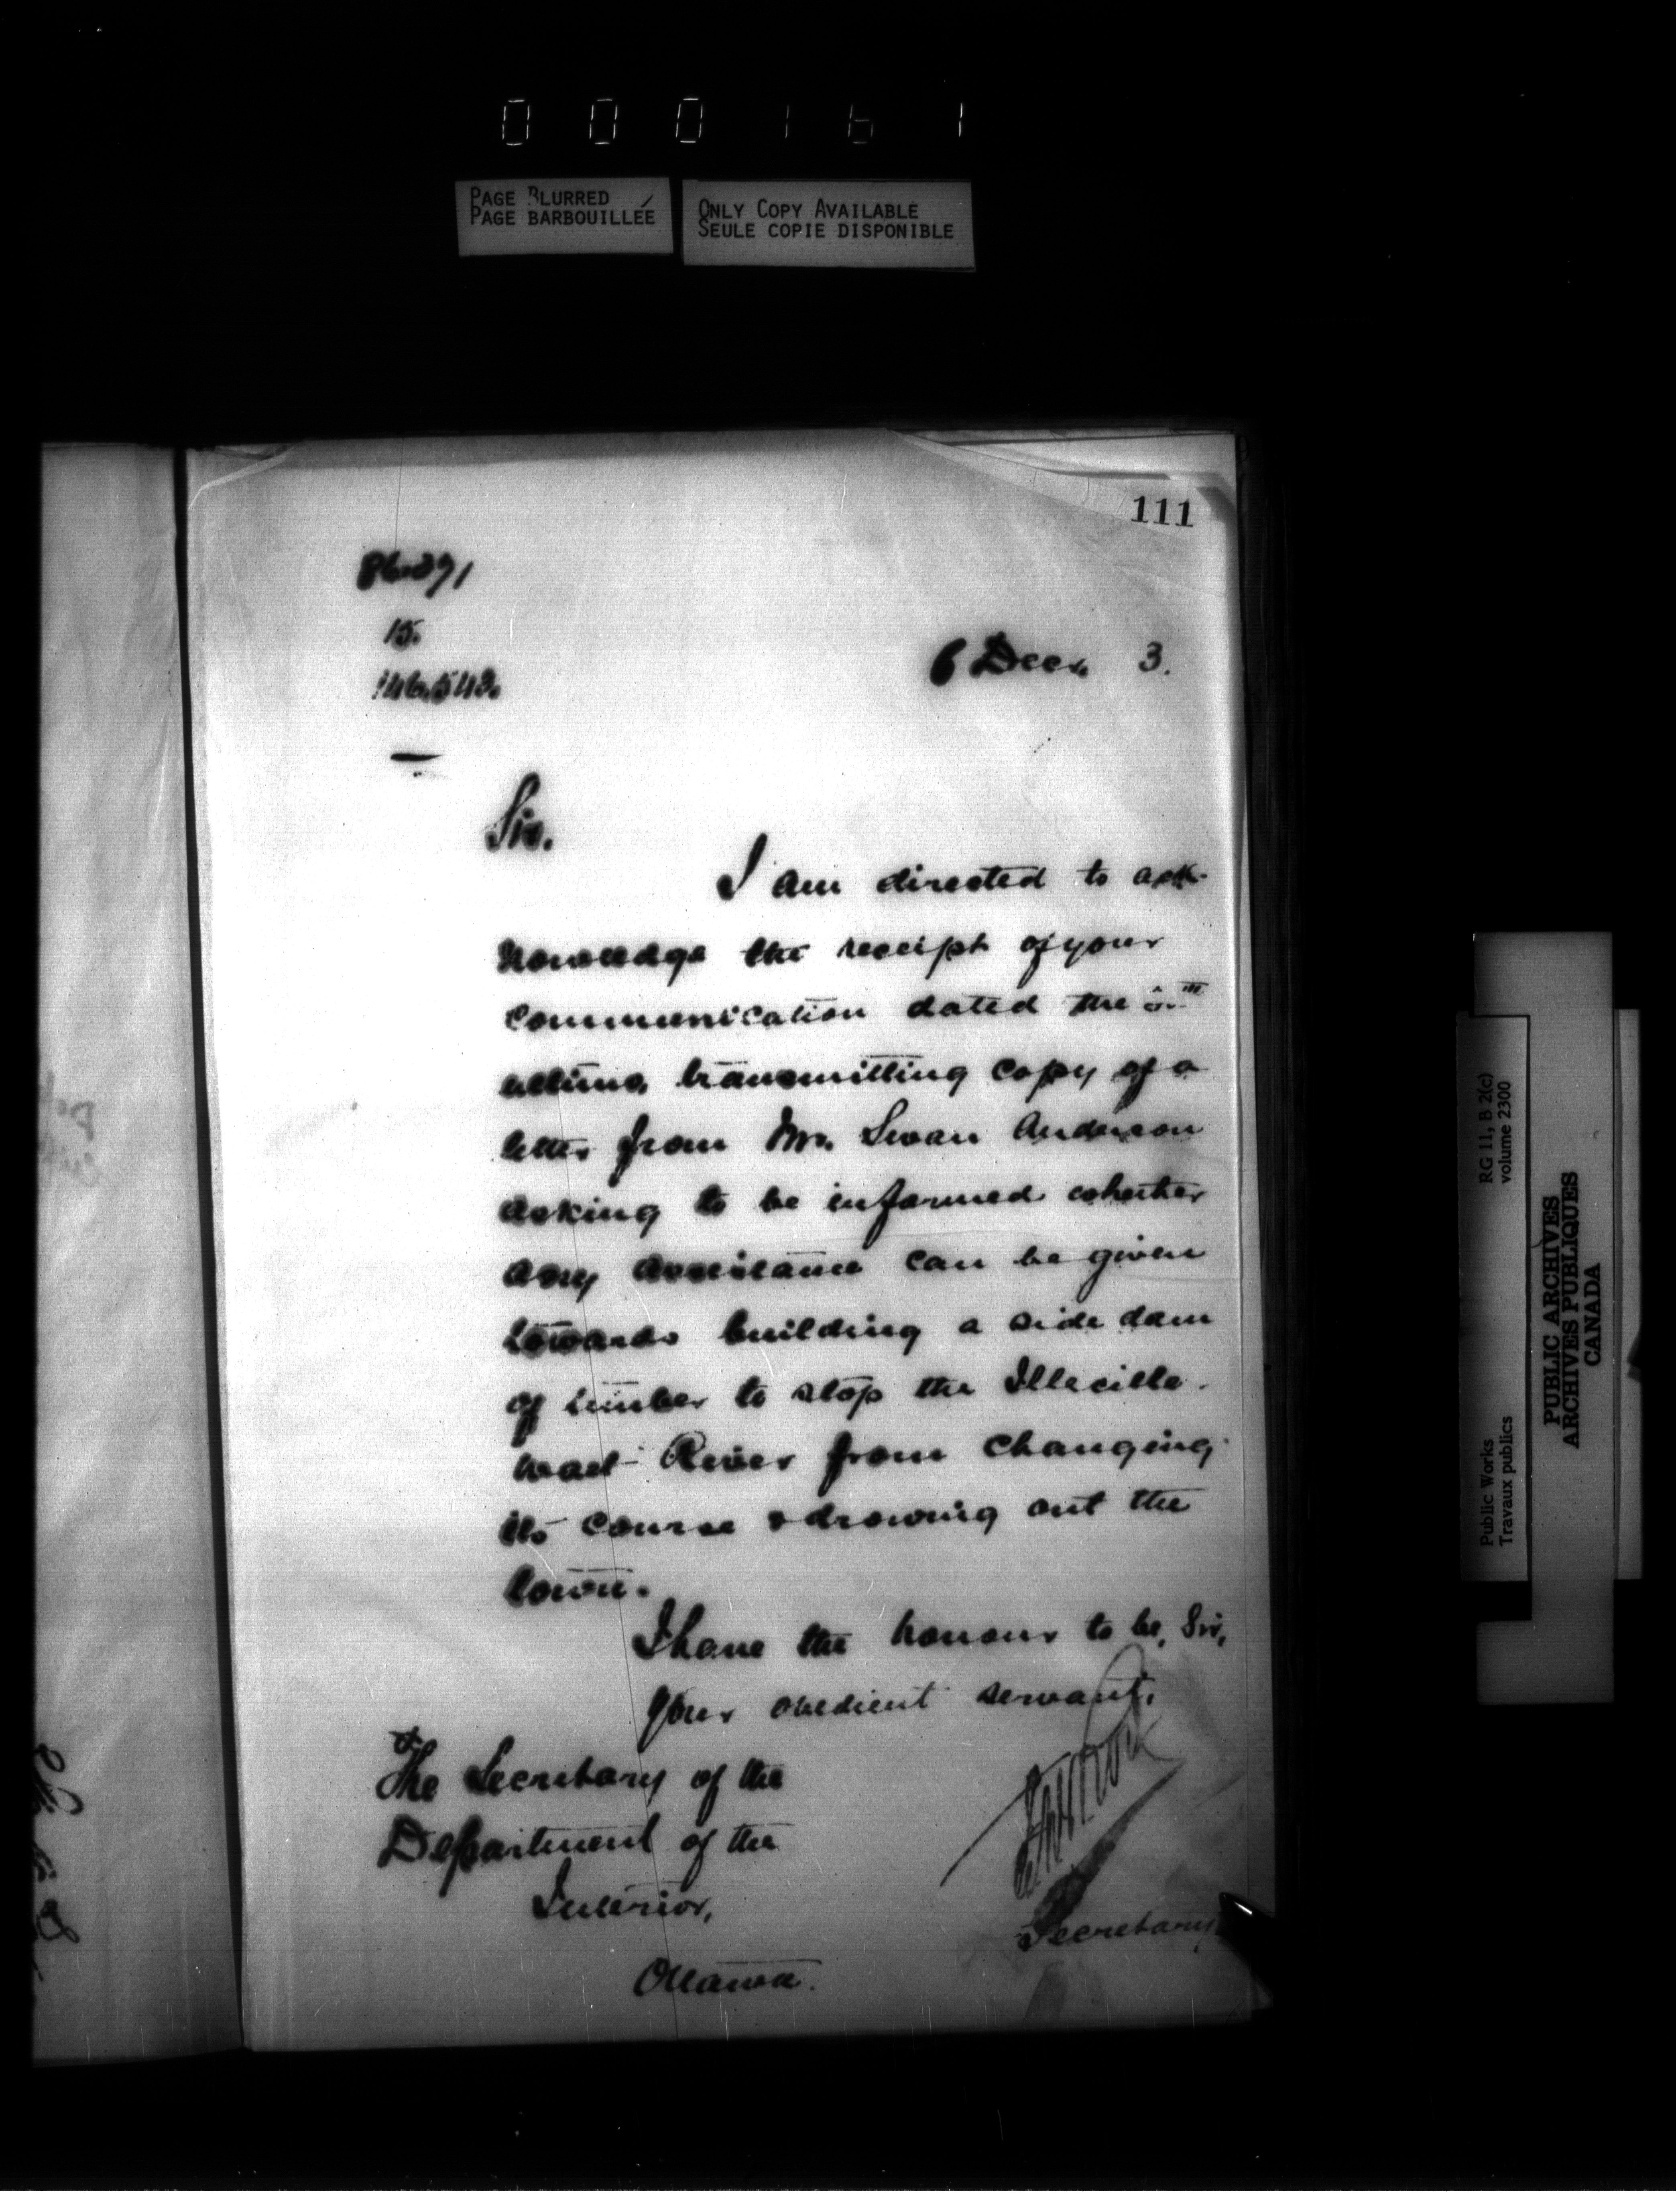 000161
PAGE BLURRED
PAGE BARBOUILLÉE
ONLY COPY AVAILABLE
SEULE COPIE DISPONIBLE
111
15.
146,543.
6 Decr. 3.
Sir.
I am directed to ack-
nowledge the receipt of your
communication dated the
ultimo, transmitting copy of a
letter from Mr. Swan Anderson
asking to be informed whether
any assistance can be given
towards building a side dam
of timber to stop the Illecille-
waet River from changing
its course & drowning out the
town.
I have the honour to be, Sir,
Your obedient servant,
The Secretary of the
Department of the
Interior,
Ottawa.
Secretary
Public Works
Travaux publics
RG 11, B 2(c)
volume 2300
PUBLIC ARCHIVES
ARCHIVES PUBLIQUES
CANADA